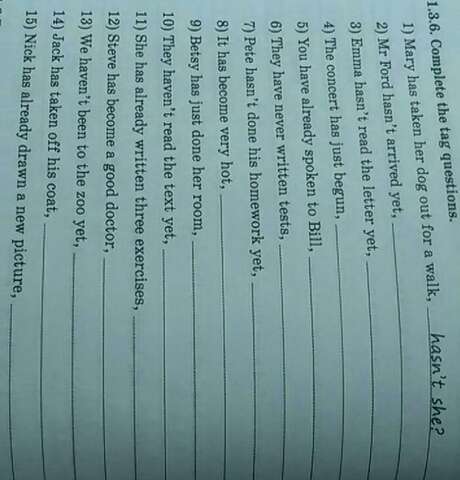 1.3.6. Complete the tag questions.
1) Mary has taken her dog out for a walk, hasn't she?
2) Mr Ford hasn't arrived yet,
3) Emma hasn't read the letter yet,
4) The concert has just begun,
5) You have already spoken to Bill,
6) They have never written tests,
7) Pete hasn't done his homework yet,
8) It has become very hot,
9) Betsy has just done her room,
10) They haven't read the text yet,
11) She has already written three exercises,
12) Steve has become a good doctor,
13) We haven't been to the zoo yet,
14) Jack has taken off his coat,
15) Nick has already drawn a new picture,